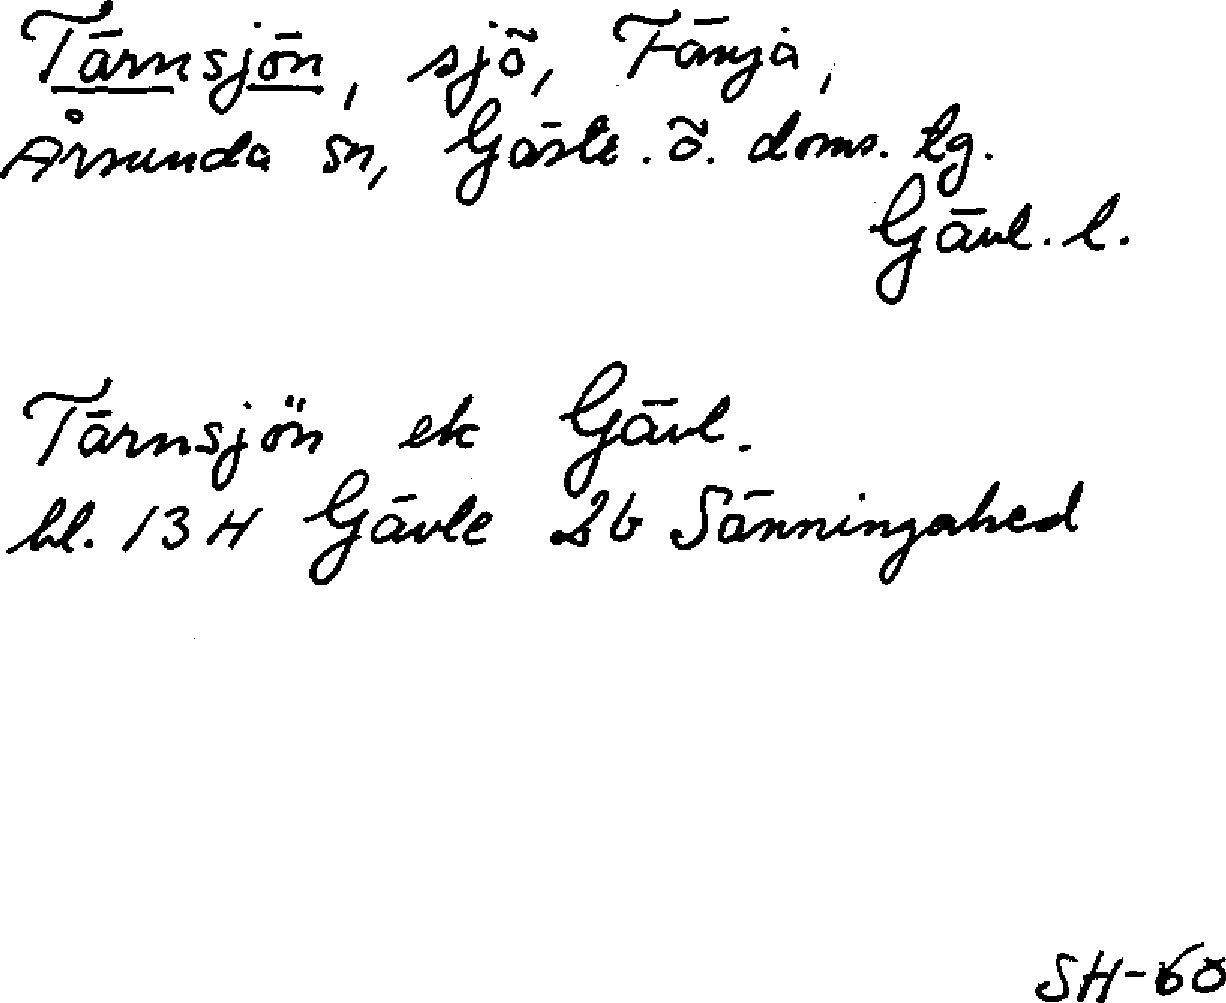 Tärnsjön, sjö, Fänja,
Årsunda sn, Gästr. ö. doms. tg.
Gävl. l.
Tärnsjön ek Gävl.
bl. 13 H Gävle 2b Sänningahed
SH-60